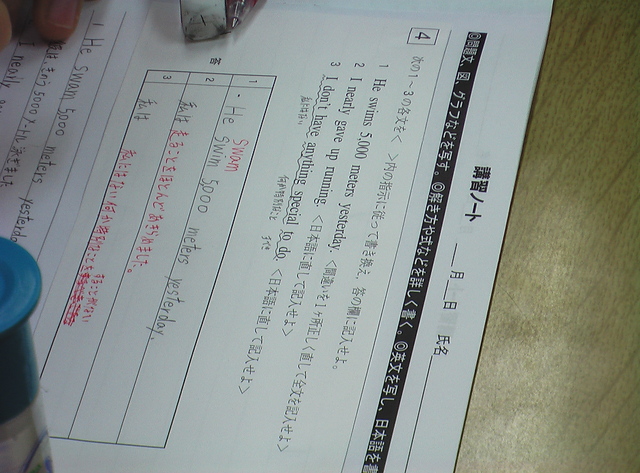 講習ノート
月 日 氏名
◎問題文、図、グラフなどを写す。◎解き方や式などを詳しく書く。◎英文を写し、日本語を書
4 次の1~3の各文を< >内の指示に従って書き換え、答の欄に記入せよ。
1 He swims 5,000 meters yesterday. <間違いを1ヶ所正しく直して全文を記入せよ>
2 I nearly gave up running. <日本語に直して記入せよ>
3 I don't have anything special to do. <日本語に直して記入せよ>
答
1 ・He Swim 5000 meters yesterday.
Swam
2 私は走ることをほとんどあきらめました。
3 私は
私にはない何か特別なことを
・He Swam 5000 meters yesterday